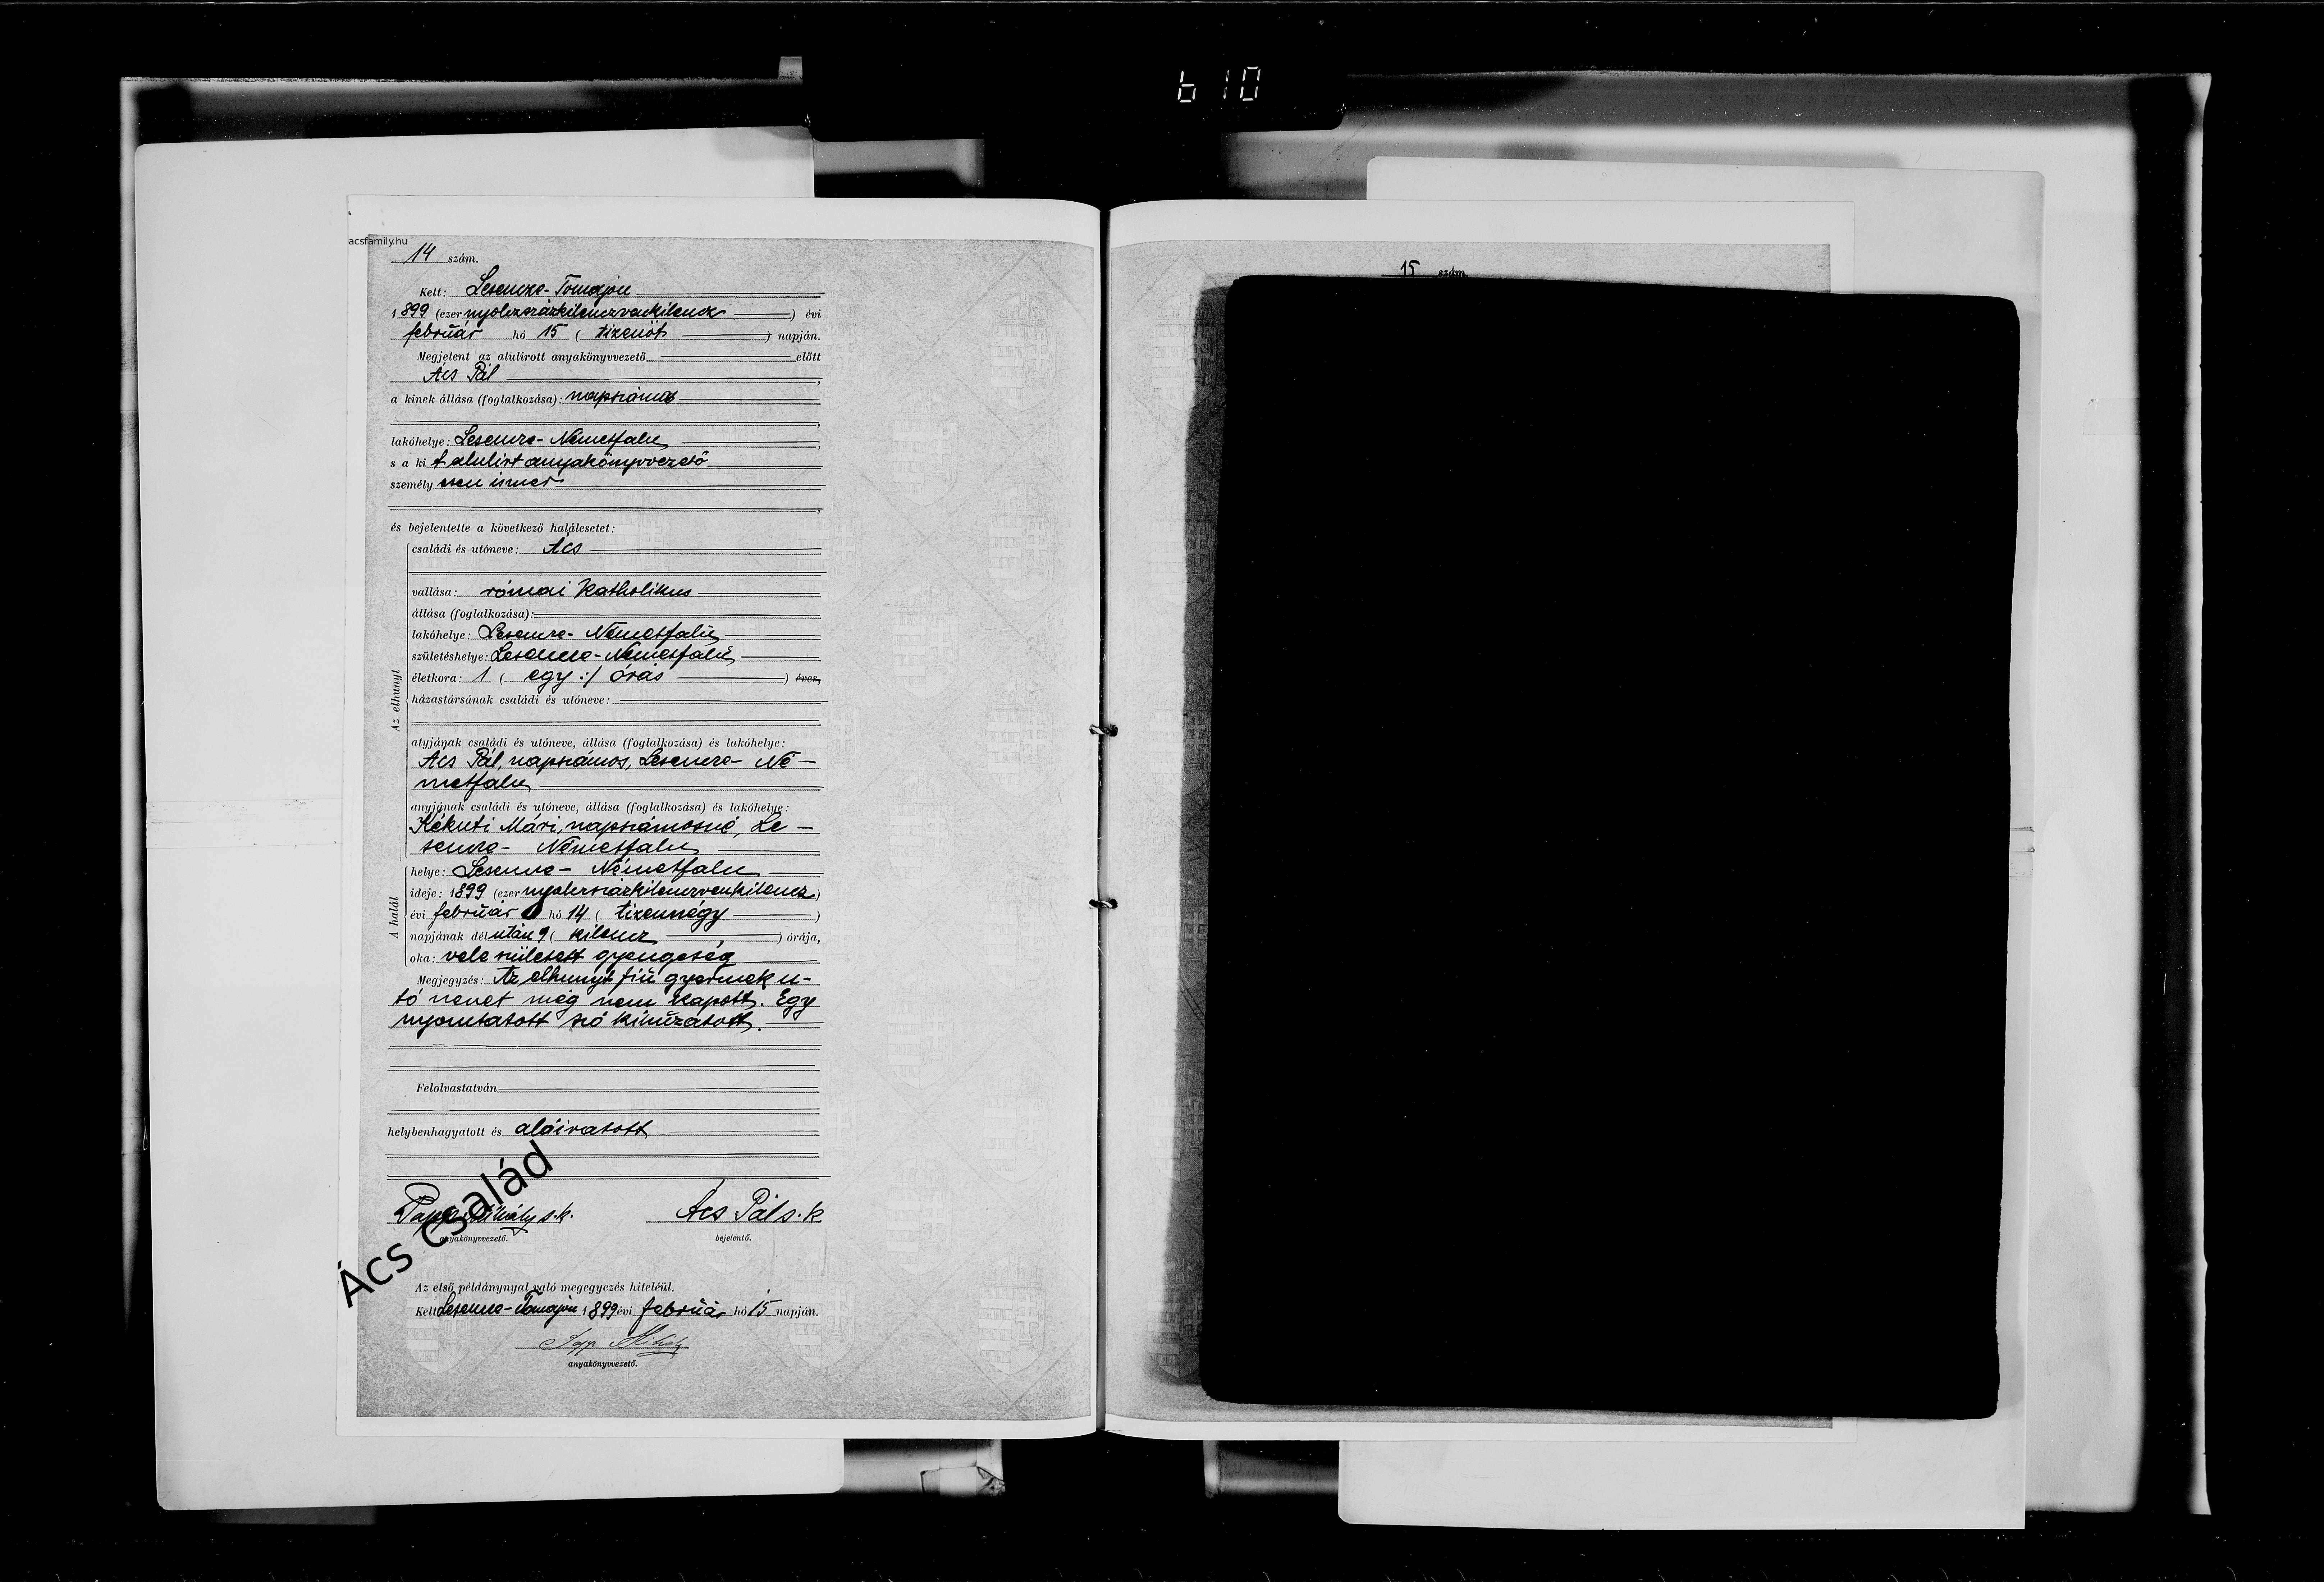 610
acsfamily.hu
14 szám.
Kelt: Lesencze-Tomajon
1899 (ezer nyolczszázkilenczvenkilencz) évi
február hó 15 (tizenöt) napján.
Megjelent az alulirott anyakönyvvezető előtt
Ács Pál,
a kinek állása (foglalkozása): napszámos
,
lakóhelye: Lesencze-Németfalu,
s a ki t alulirt anyakönyvvezető
személy esen ismer
,
és bejelentette a következő halálesetet:
Az elhunyt
családi és utóneve: Ács
vallása: római katholikus
állása (foglalkozása):
lakóhelye: Lesencze-Németfalu
születéshelye: Lesencze-Németfalu
életkora: 1 ( egy :/ órás ) éves,
házastársának családi és utóneve:
atyjának családi és utóneve, állása (foglalkozása) és lakóhelye:
Ács Pál, napszámos, Lesencze-Né-
metfalu
anyjának családi és utóneve, állása (foglalkozása) és lakóhelye:
Kékuti Mári, napszámosné, Le-
sencze-Németfalu
A halál
helye: Lesencze-Németfalu
ideje: 1899 (ezer nyolczszázkilenczvenkilencz)
évi február hó 14 (tizennégy)
napjának dél után 9 (kilencz) órája,
oka: vele született gyengeség
Megjegyzés: Az elhunyt fiú gyermek u-
tó nevet még nem kapott. Egy
nyomtatott szó kihúzatott.
Felolvastatván
helybenhagyatott és aláiratott
Papp Mihály s.k.
anyakönyvvezető.
Ács Pál s.k
bejelentő.
Ács család
Az első példánynyal való megegyezés hiteléül.
Kelt Lesencze-Tomajon 1899 évi február hó 15 napján.
Papp Mihály
anyakönyvvezető.
15 szám.